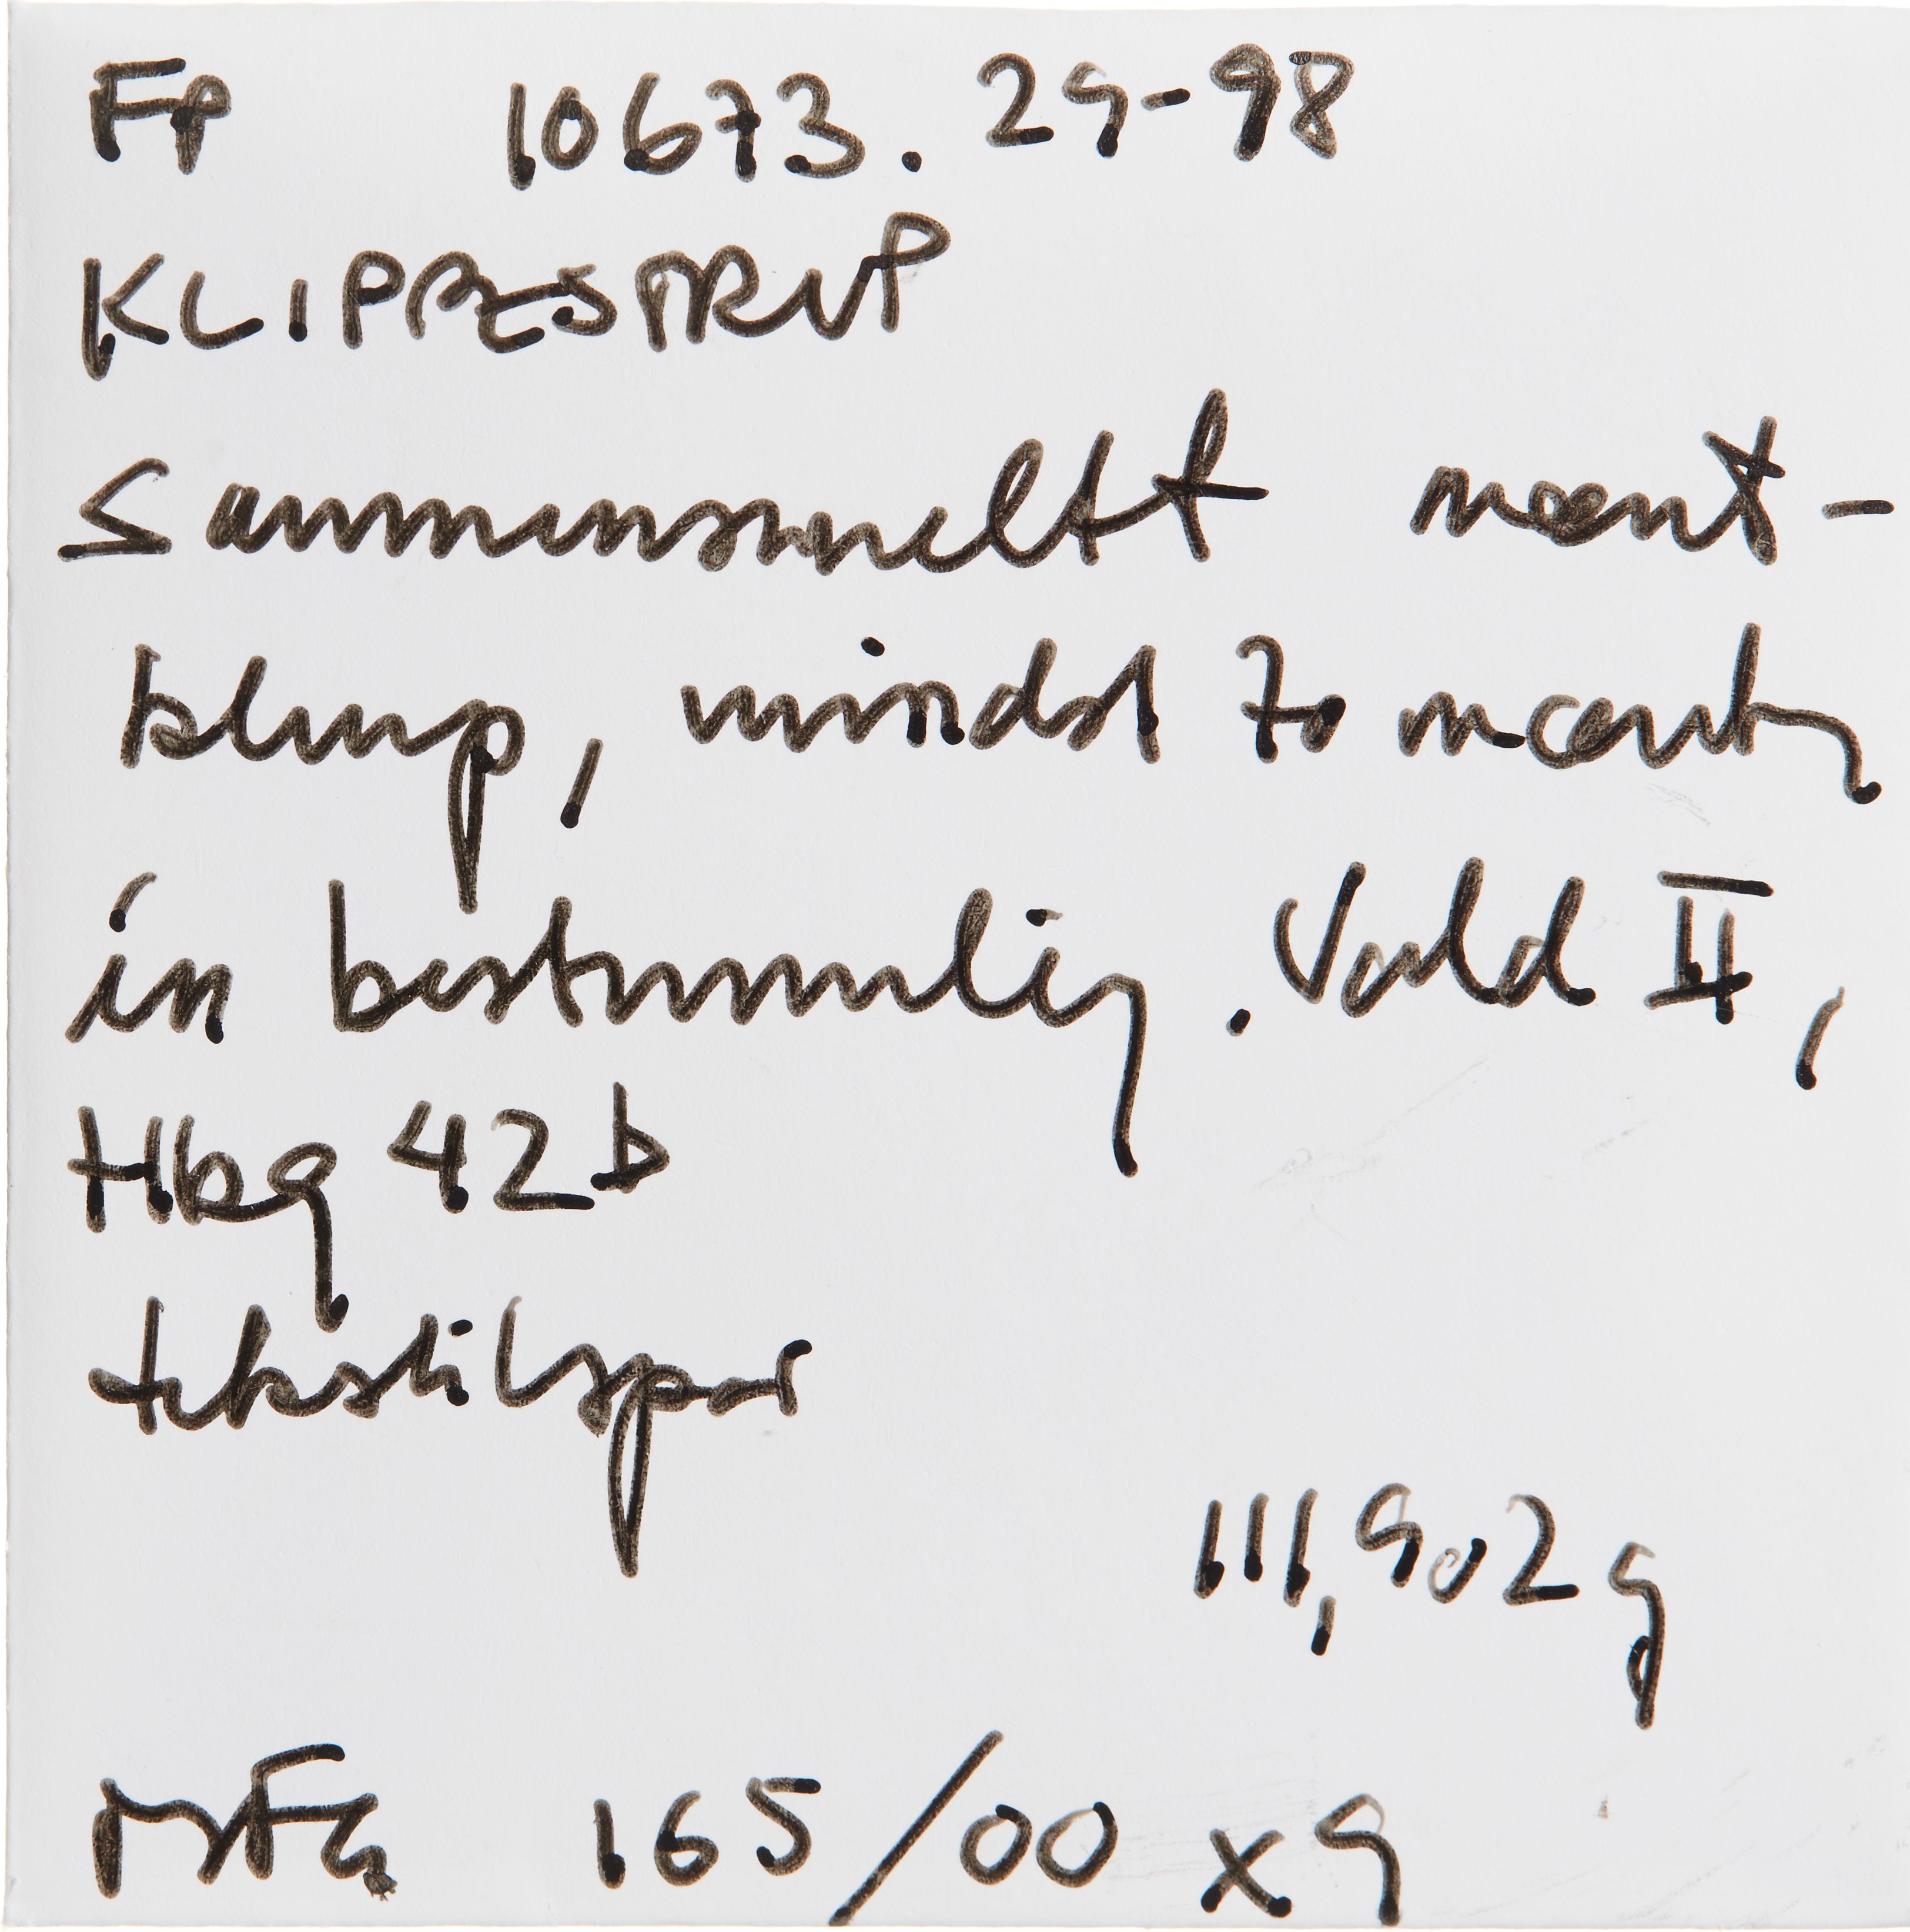 FP 10673. 29-98
KLIPPESTRUP
Sammensmeltt mønt-
klump, mindst 70 mønter
in bestemmlig. Vald II,
Hbg 42b
tekstilspor
111,902 g
MFG 165/00 x9